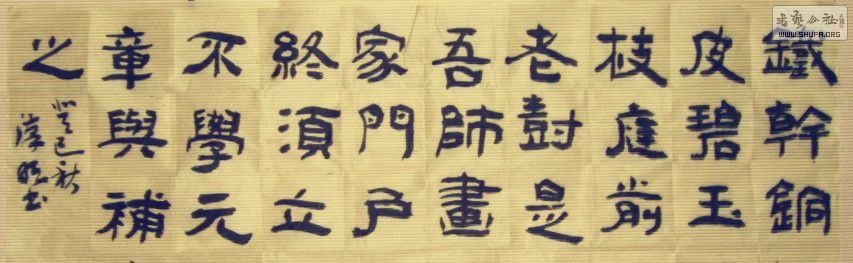 鐵幹銅
皮碧玉
枝庭前
老樹是
吾師畫
家門戶
終須立
不學元
章與補
之
癸巳秋
書
書藝公社
WWW.SHUFA.ORG